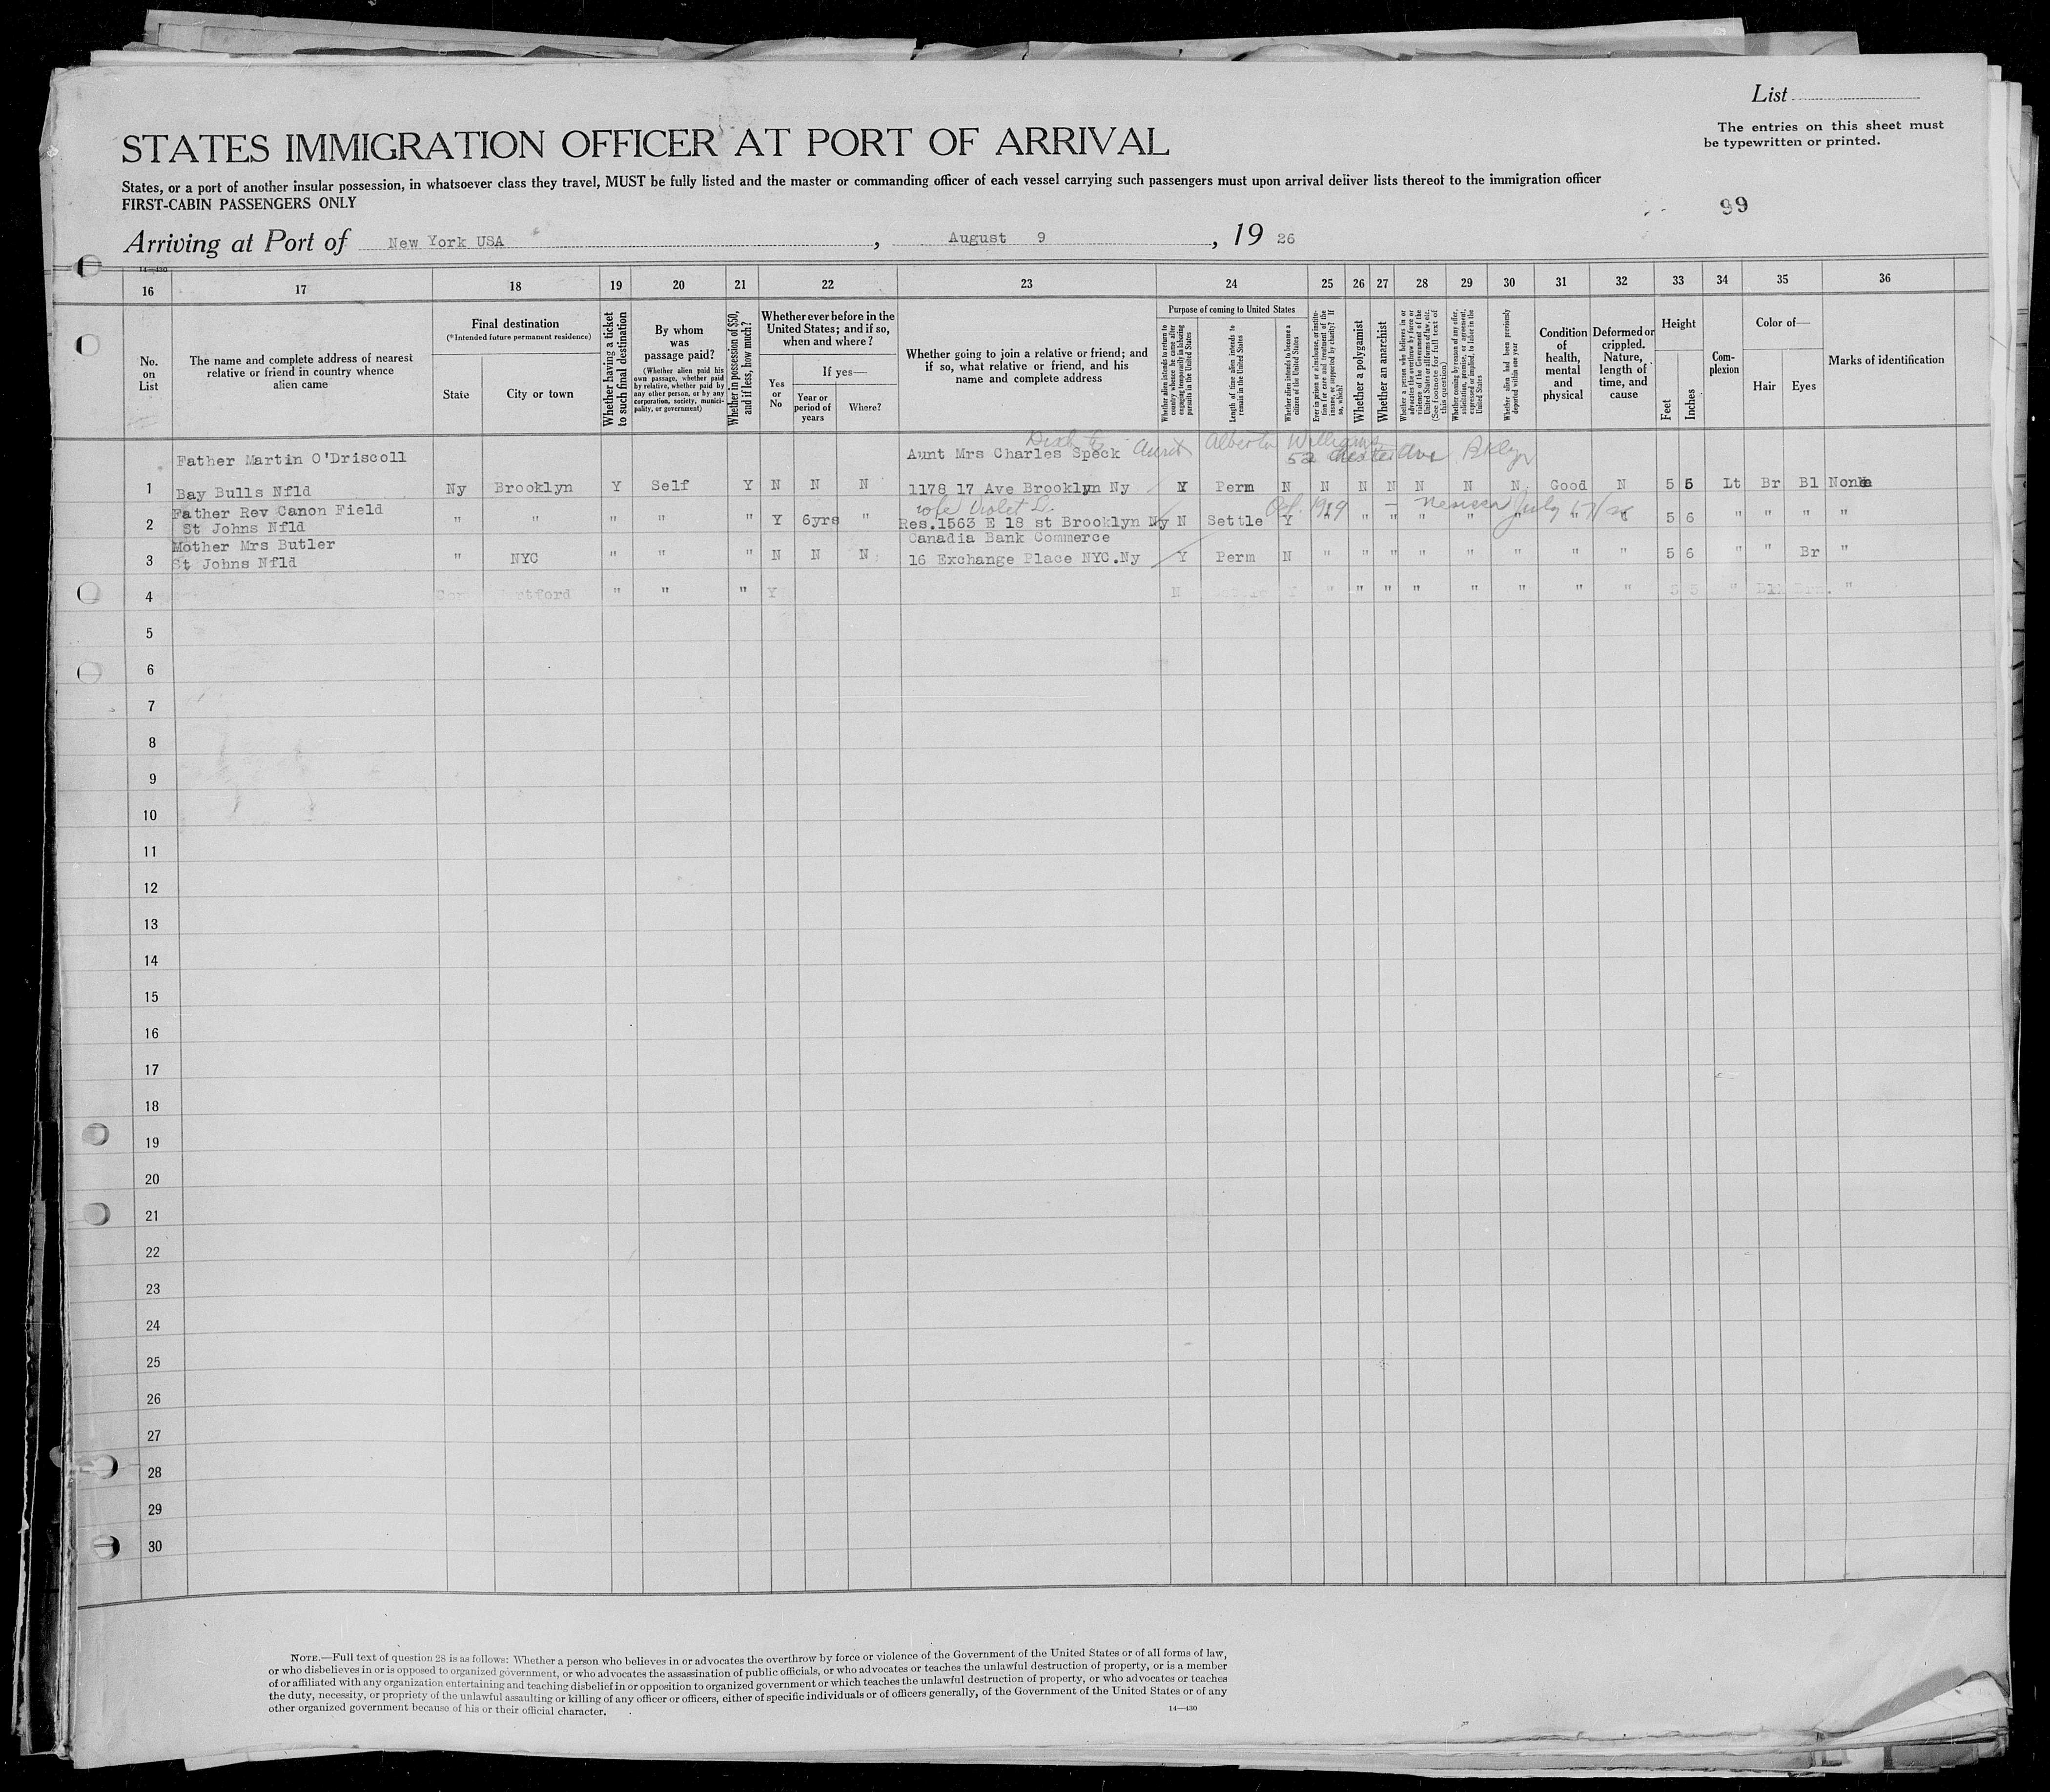 List
The entries on this sheet must
be typewritten or printed.
STATES IMMIGRATION OFFICER AT PORT OF ARRIVAL
States, or a port of another insular possession, in whatsoever class they travel, MUST be fully listed and the master or commanding officer of each vessel carrying such passengers must upon arrival deliver lists thereof to the immigration officer
FIRST-CABIN PASSENGERS ONLY
99
Arriving at Port of New York USA, August 9, 19 26
14—430
16 17 18 19 20 21 22 23 24 25 26 27 28 29 30 31 32 33 34 35 36
No.
on
List
The name and complete address of nearest
relative or friend in country whence
alien came
Final destination
(*Intended future permanent residence)
State
City or town
Whether having a ticket
to such final destination
By whom
was
passage paid?
(Whether alien paid his
own passage, whether paid
by relative, whether paid by
any other person, or by any
corporation, society, munici-
pality, or government)
Whether in possession of $50,
and if less, how much?
Whether ever before in the
United States; and if so,
when and where?
Yes
or
No
If yes—
Year or
period of
years
Where?
Whether going to join a relative or friend; and
if so, what relative or friend, and his
name and complete address
Purpose of coming to United States
Whether alien intends to return to
country whence he came after
engaging temporarily in laboring
pursuits in the United States
Length of time alien intends to
remain in the United States
Whether alien intends to become a
citizen of the United States
Ever in prison or almshouse, or institu-
tion for care and treatment of the
insane, or supported by charity? If
so, which?
Whether a polygamist
Whether an anarchist
Whether a person who believes in or
advocates the overthrow by force or
violence of the Government of the
United States or all forms of law, etc.
(See footnote for full text of
this question.)
Whether coming by reason of any offer,
solicitation, promise, or agreement,
expressed or implied, to labor in the
United States
Whether alien had been previously
deported within one year
Condition
of
health,
mental
and
physical
Deformed or
crippled.
Nature,
length of
time, and
cause
Height
Feet
Inches
Com-
plexion
Color of—
Hair
Eyes
Marks of identification
Aunt Alberta Williams
52 Chester Ave Bklyn
Father Martin O'Driscoll Aunt Mrs Charles Speck
1 Bay Bulls Nfld Ny Brooklyn Y Self Y N N N 1178 17 Ave Brooklyn Ny Y Perm N N N N N N N Good N 5 5 Lt Br Bl None
Father Rev Canon Field wife Violet L.
2 St Johns Nfld " " " " " Y 6yrs " Res.1563 E 18 st Brooklyn Ny N Settle Y " " " " " " " " 5 6 " " " "
Mother Mrs Butler Canadia Bank Commerce
3 St Johns Nfld " NYC " " " N N N 16 Exchange Place NYC.Ny Y Perm N " " " " " " " " 5 6 " " Br "
4 " " " Y N Y " " " " " " " " 5 5 " "
5
6
7
8
9
10
11
12
13
14
15
16
17
18
19
20
21
22
23
24
25
26
27
28
29
30
NOTE.—Full text of question 28 is as follows: Whether a person who believes in or advocates the overthrow by force or violence of the Government of the United States or of all forms of law,
or who disbelieves in or is opposed to organized government, or who advocates the assassination of public officials, or who advocates or teaches the unlawful destruction of property, or is a member
of or affiliated with any organization entertaining and teaching disbelief in or opposition to organized government or which teaches the unlawful destruction of property, or who advocates or teaches
the duty, necessity, or propriety of the unlawful assaulting or killing of any officer or officers, either of specific individuals or of officers generally, of the Government of the United States or of any
other organized government because of his or their official character.
14—430